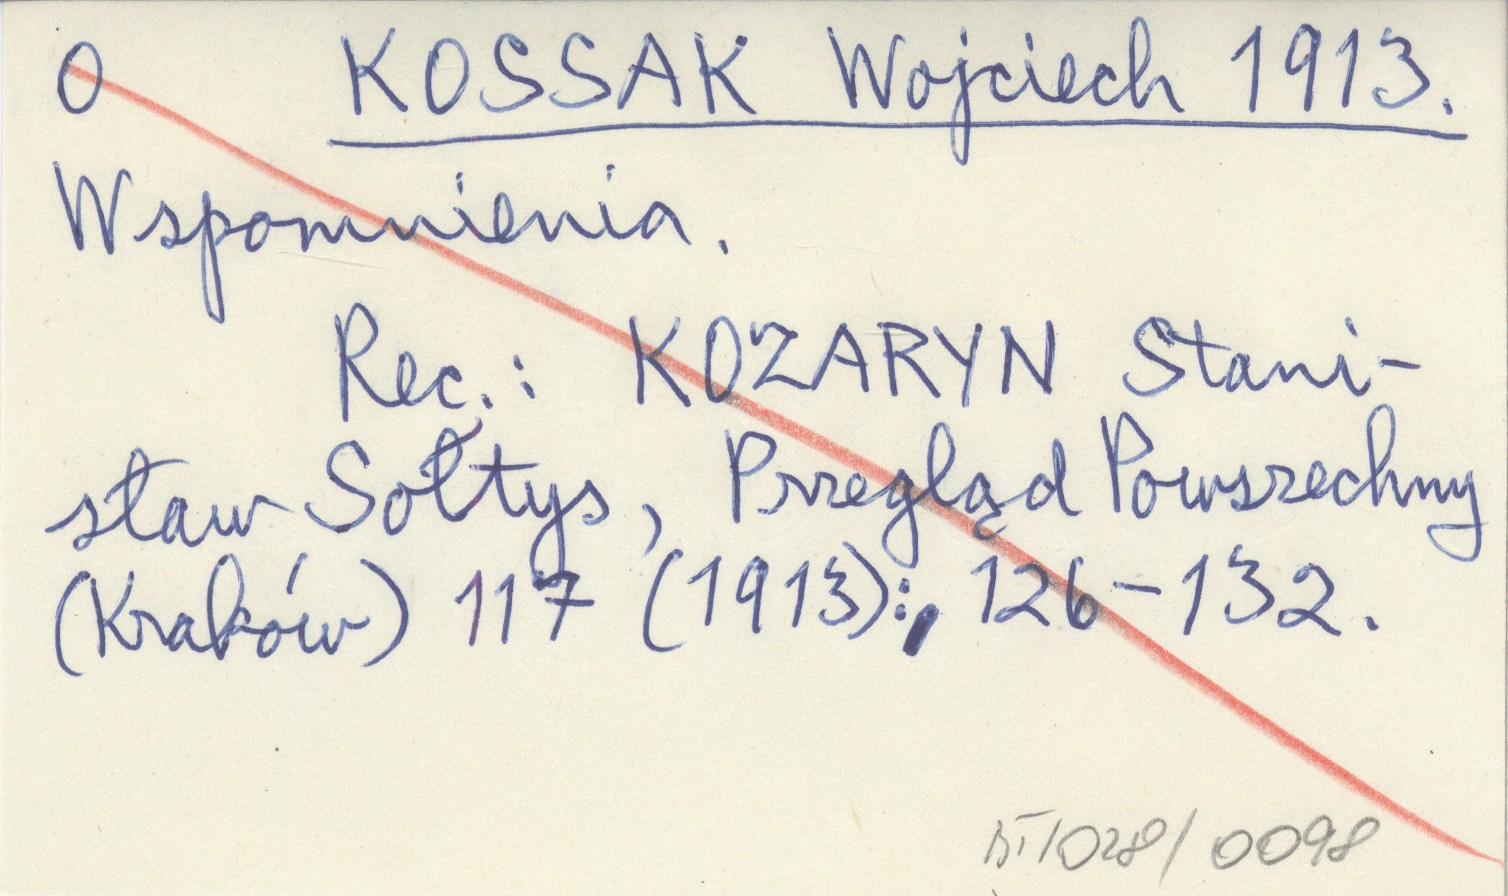 O KOSSAK Wojciech 1913.
Wspomnienia.
Rec.: KOZARYN Stani-
sław Sołtys, Przegląd Powszechny
(Kraków) 117 (1913): 126-132.
/028/0098